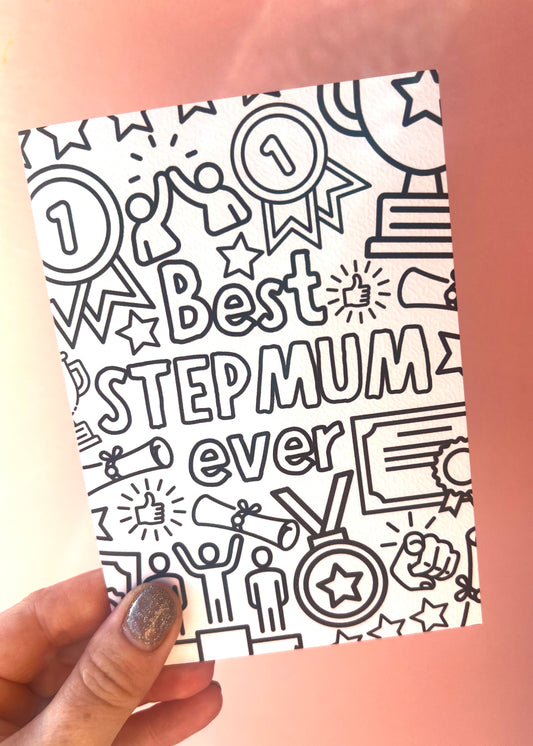 1
1
Best
STEPMUM
ever